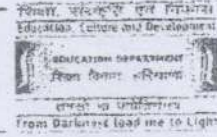 शिक्षा, संस्कृति एवं विकास
Education, Culture and Development
EDUCATION DEPARTMENT
शिक्षा विभाग हरियाणा
तमसो मा ज्योतिर्गमय
From Darkness lead me to Light